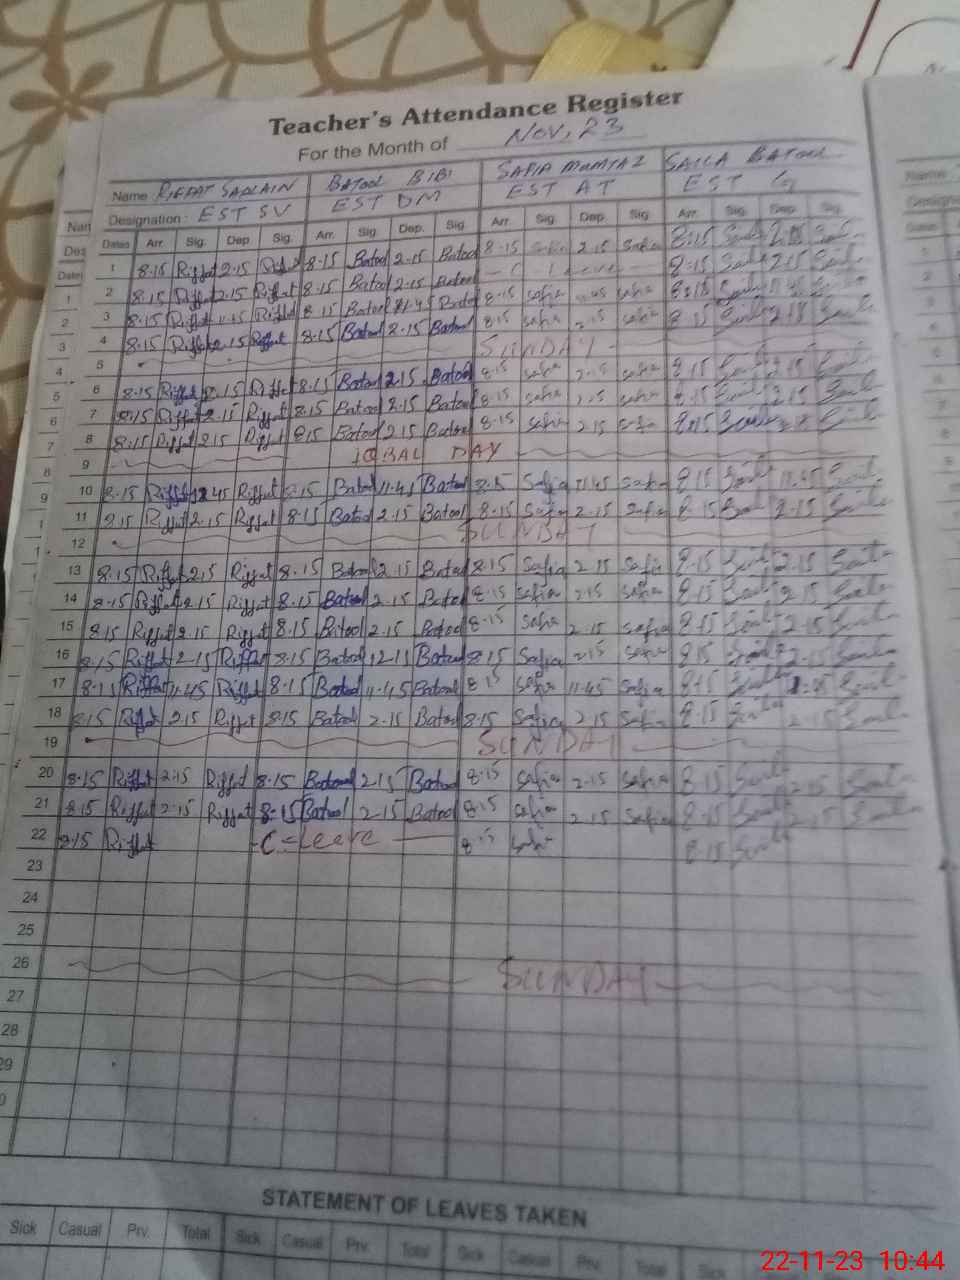 Teacher's Attendance Register
For the Month of Nov, 23
Name RIFFAT SAQLAIN BATOOL BIBI SAFIA MUMTAZ SAILA BATOOL
Designation : EST SV EST DM EST AT EST
Dates Arr. Sig. Dep. Sig. Arr. Sig. Dep. Sig. Arr. Sig. Dep. Sig. Arr. Sig. Dep. Sig.
1 8.15 Riffat 2.15 Riffat 8.15 Batool 2.15 Batool 8.15 Safia 2.15 Safia 8.15 2.15
2 8.15 Riffat 2.15 Riffat 8.15 Batool 2.15 Batool - C - Leave 8.15 2.15
3 8.15 Riffat 11.45 Riffat 8.15 Batool 11.45 Batool 8.15 Safia 11.45 Safia 8.15 11.45
4 8.15 Riffat 2.15 Riffat 8.15 Batool 2.15 Batool 8.15 Safia 2.15 Safia 8.15 2.15
5 SUNDAY
6 8.15 Riffat 2.15 Riffat 8.15 Batool 2.15 Batool 8.15 Safia 2.15 Safia 8.15 2.15
7 8.15 Riffat 2.15 Riffat 8.15 Batool 2.15 Batool 8.15 Safia 2.15 Safia 8.15 2.15
8 8.15 Riffat 2.15 Riffat 8.15 Batool 2.15 Batool 8.15 Safia 2.15 Safia 8.15
9 IQBAL DAY
10 8.15 Riffat 11.45 Riffat 8.15 Batool 11.45 Batool 8.15 Safia 11.45 Safia 8.15 11.45
11 8.15 Riffat 2.15 Riffat 8.15 Batool 2.15 Batool 8.15 Safia 2.15 Safia 8.15 2.15
12 SUNDAY
13 8.15 Riffat 2.15 Riffat 8.15 Batool 2.15 Batool 8.15 Safia 2.15 Safia 8.15 2.15
14 8.15 Riffat 2.15 Riffat 8.15 Batool 2.15 Batool 8.15 Safia 2.15 Safia 8.15 2.15
15 8.15 Riffat 2.15 Riffat 8.15 Batool 2.15 Batool 8.15 Safia 2.15 Safia 8.15 2.15
16 8.15 Riffat 2.15 Riffat 8.15 Batool Batool 8.15 Safia 2.15 Safia 8.15 2.15
17 8.15 Riffat 11.45 Riffat 8.15 Batool 11.45 Batool 8.15 Safia 11.45 Safia 8.15
18 8.15 Riffat 2.15 Riffat 8.15 Batool 2.15 Batool 8.15 Safia 2.15 Safia 8.15 2.15
19 SUNDAY
20 8.15 Riffat 2.15 Riffat 8.15 Batool 2.15 Batool 8.15 Safia 2.15 Safia 8.15 2.15
21 8.15 Riffat 2.15 Riffat 8.15 Batool 2.15 Batool 8.15 Safia 2.15 Safia 8.15 2.15
22 8.15 Riffat - C - Leave 8.15 Safia 8.15
23
24
25
26 SUNDAY
27
28
29
STATEMENT OF LEAVES TAKEN
Sick Casual Prv. Total Sick Casual Prv. Total Sick Casual Prv. Total Sick
22-11-23 10:44